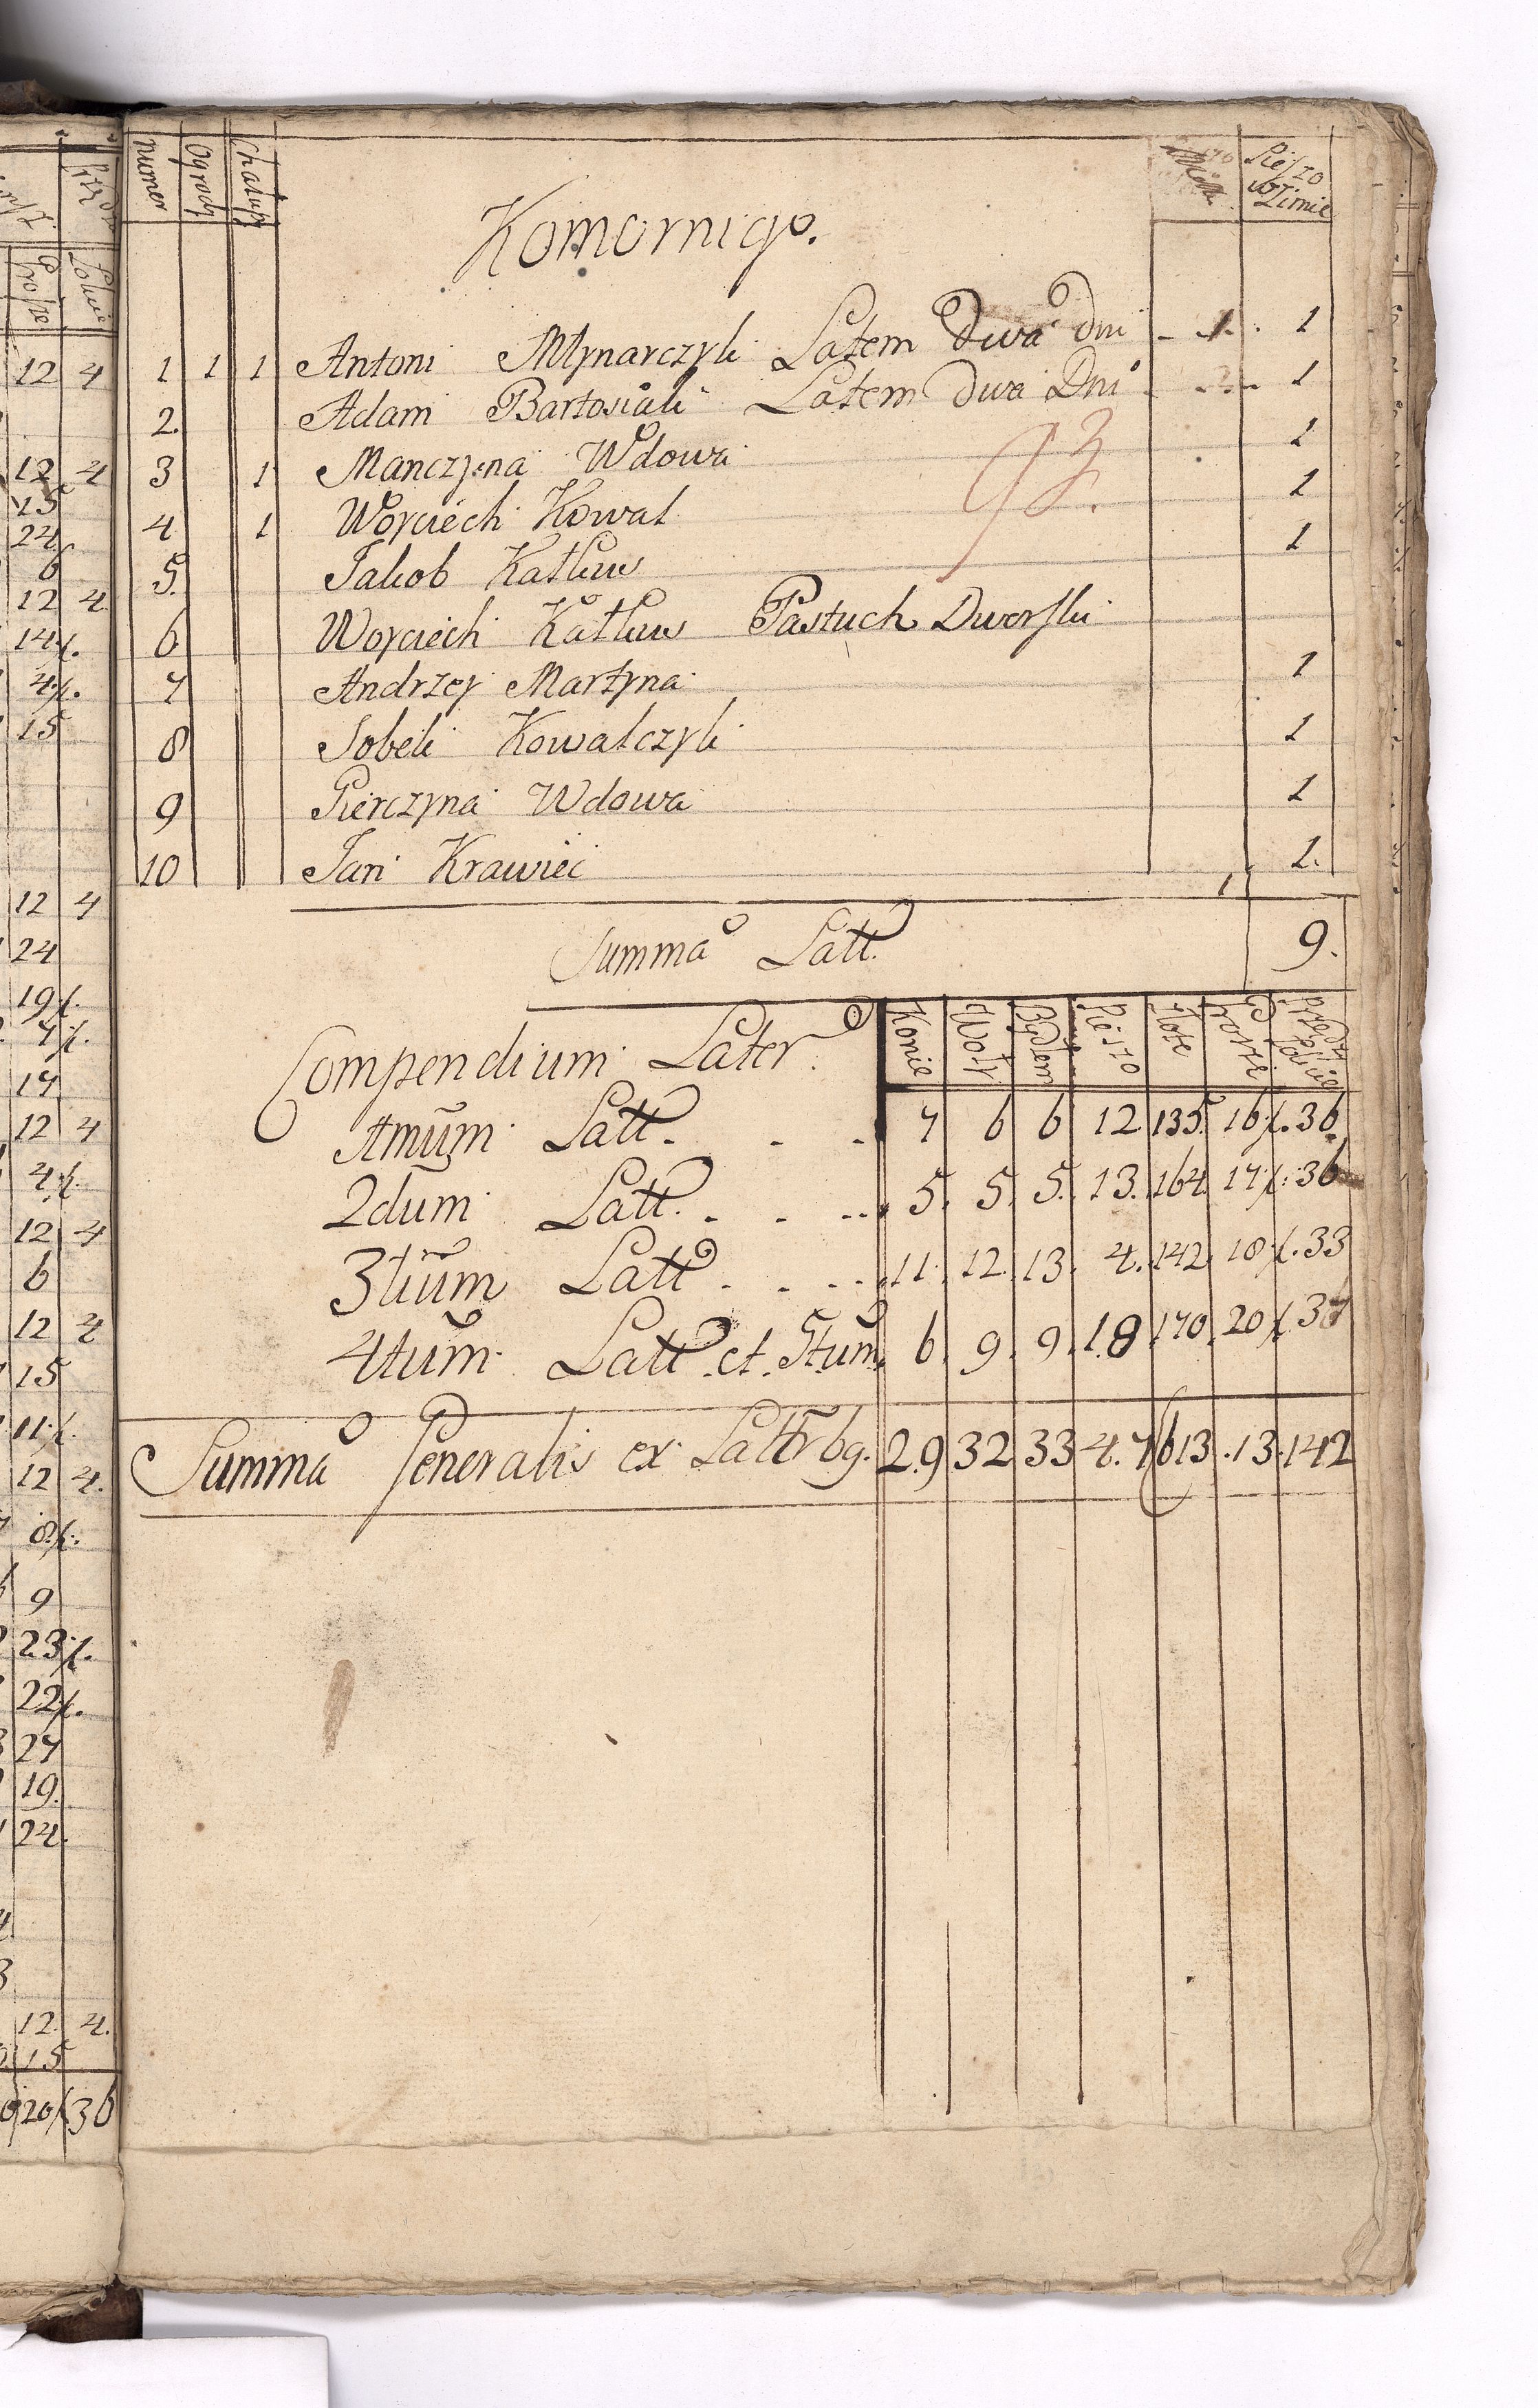 numer Ogrody Chałupy Pieszo w Zimie
Komornigo.
1 1 1 Antoni Młynarczyk Latem Dwa dni - 1. 1
2. Adam Bartosiak Latem dwa Dni 1
93.
3 1 Manczyna Wdowa 1
4 1 Woyciech Kowal 1
5. Jakob Katlew 1
6 Woyciech Katlew Pastuch Dworski
7 Andrzey Martyna 1
8 Sobek Kowalczyk 1
9 Pierczyna Wdowa 1
10 Jan Krawiec 1.
Summa Latt. 9.
Konie Woły Bydłem Pieszo Złote Grosze
Compendium Later.
Amum Latt. - - 7 6 6 12 135. 16/. 36.
2dum Latt. - - 5. 5. 5. 13. 164. 17/. 36
3tium Latt. - - 11. 12. 13. 4. 142. 18/. 33
4tum Latt. et. 5tum. 6. 9. 9. 18. 170. 20/. 37
Summa Generalis ex Lattrbg. 29 32 33 47 613. 13. 142
12 4
12 4
15
24
6
12 4.
14/.
4/.
15
12 4
24
19/.
7/.
17
12 4
4/.
12 4
6
12 4
15
11/.
12 4.
8/.
9
23/.
22/.
27
19.
24.
12. 4.
15
20/. 36